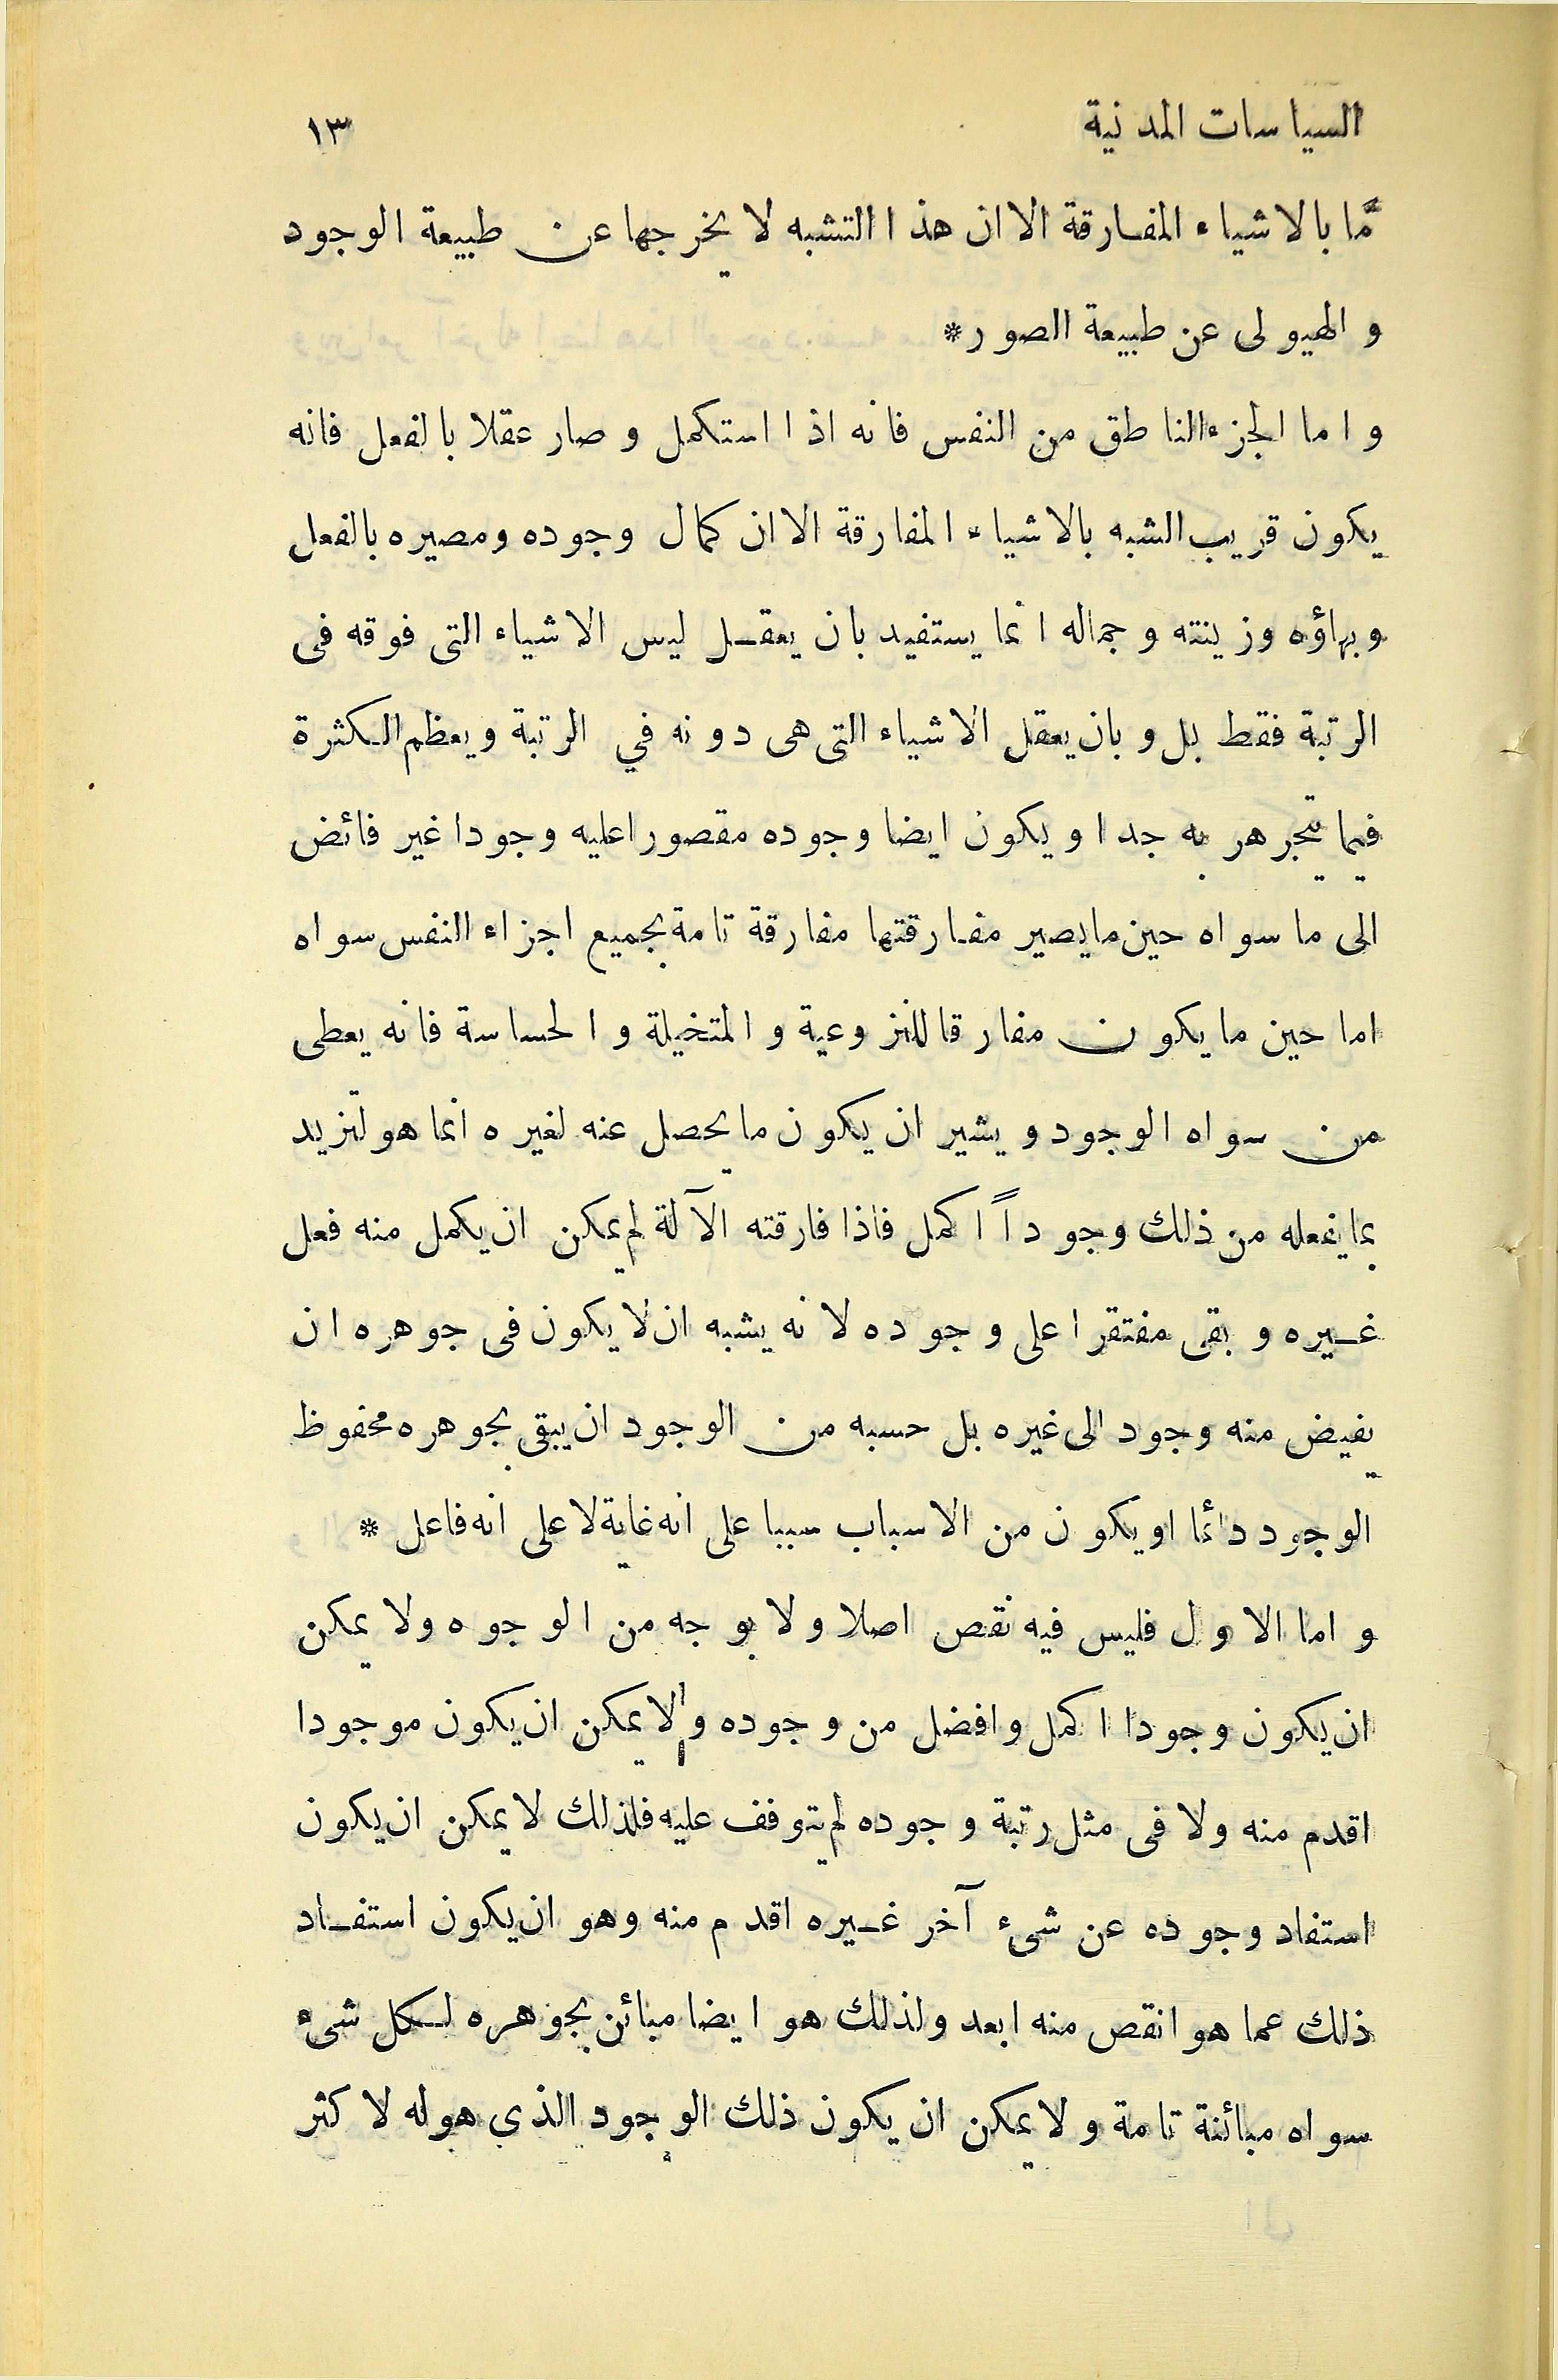 السياسات المدنية ١٣
مّا بالاشياء المفارقة الا ان هذا التشبه لا يخرجها عن طبيعة الوجود
و الهيولى عن طبيعة الصور*
و اما الجزء الناطق من النفس فانه اذا استكمل و صار عقلا بالفعل فانه
يكون قريب الشبه بالاشياء المفارقة الا ان كمال وجوده ومصيره بالفعل
و بهاؤه وزينته وجماله انما يستفيد بان يعقل ليس الاشياء التى فوقه فى
الرتبة فقط بل و بان يعقل الاشياء التى هى دونه في الرتبة و يعظم الكثرة
فيما يتجرهر به جدا و يكون ايضا وجوده مقصورا عليه وجودا غير فائض
الى ما سواه حين ما يصير مفارقتها مفارقة تامة بجميع اجزاء النفس سواه
اما حين ما يكون مفارقا للنزوعية و المتخيلة و الحساسة فانه يعطى
من سواه الوجود و يشير ان يكون ما يحصل عنه لغيره انما هو لتزيد
بما يفعله من ذلك وجوداً اكمل فاذا فارقته الآلة لم يمكن ان يكمل منه فعل
غيره و بقى مفتقرا على وجوده لانه يشبه ان لا يكون فى جوهره ان
يفيض منه وجود الى غيره بل حسبه من الوجود ان يبقى بجوهره محفوظ
الوجود دائما او يكون من الاسباب سببا على انه غاية لا على انه فاعل *
و اما الاول فليس فيه نقص اصلا ولا بوجه من الوجوه ولا يمكن
ان يكون وجودا اكمل وافضل من وجوده ولا يمكن ان يكون موجودا
اقدم منه ولا فى مثل رتبة وجوده لم يتوفف عليه فلذلك لا يمكن ان يكون
استفاد وجوده عن شىء آخر غيره اقدم منه وهو ان يكون استفاد
ذلك عما هو انقص منه ابعد ولذلك هو ايضا مبائن بجوهره لكل شىء
سواه مبائنة تامة و لا يمكن ان يكون ذلك الوجود الذي هو له لا كثر